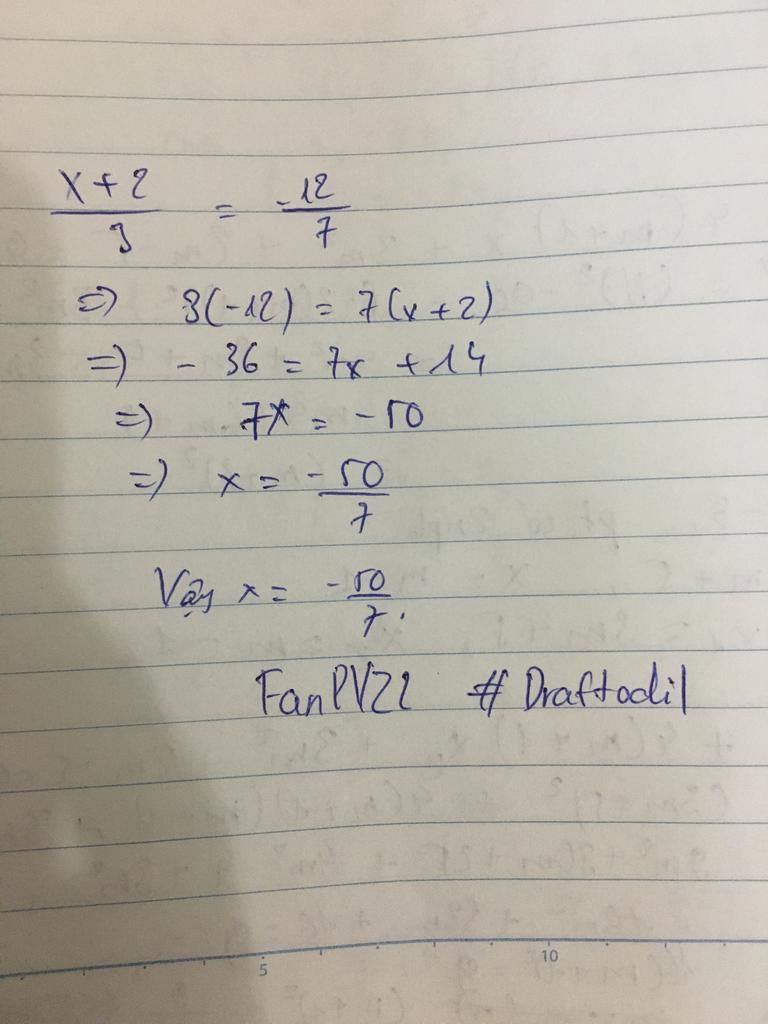 x + 2 / 3 = -12 / 7
=> 3(-12) = 7(x + 2)
=> - 36 = 7x + 14
=> 7x = - 50
=> x = - 50 / 7
Vậy x = - 50 / 7.
FanPVZ2 # Draftodil
5 10